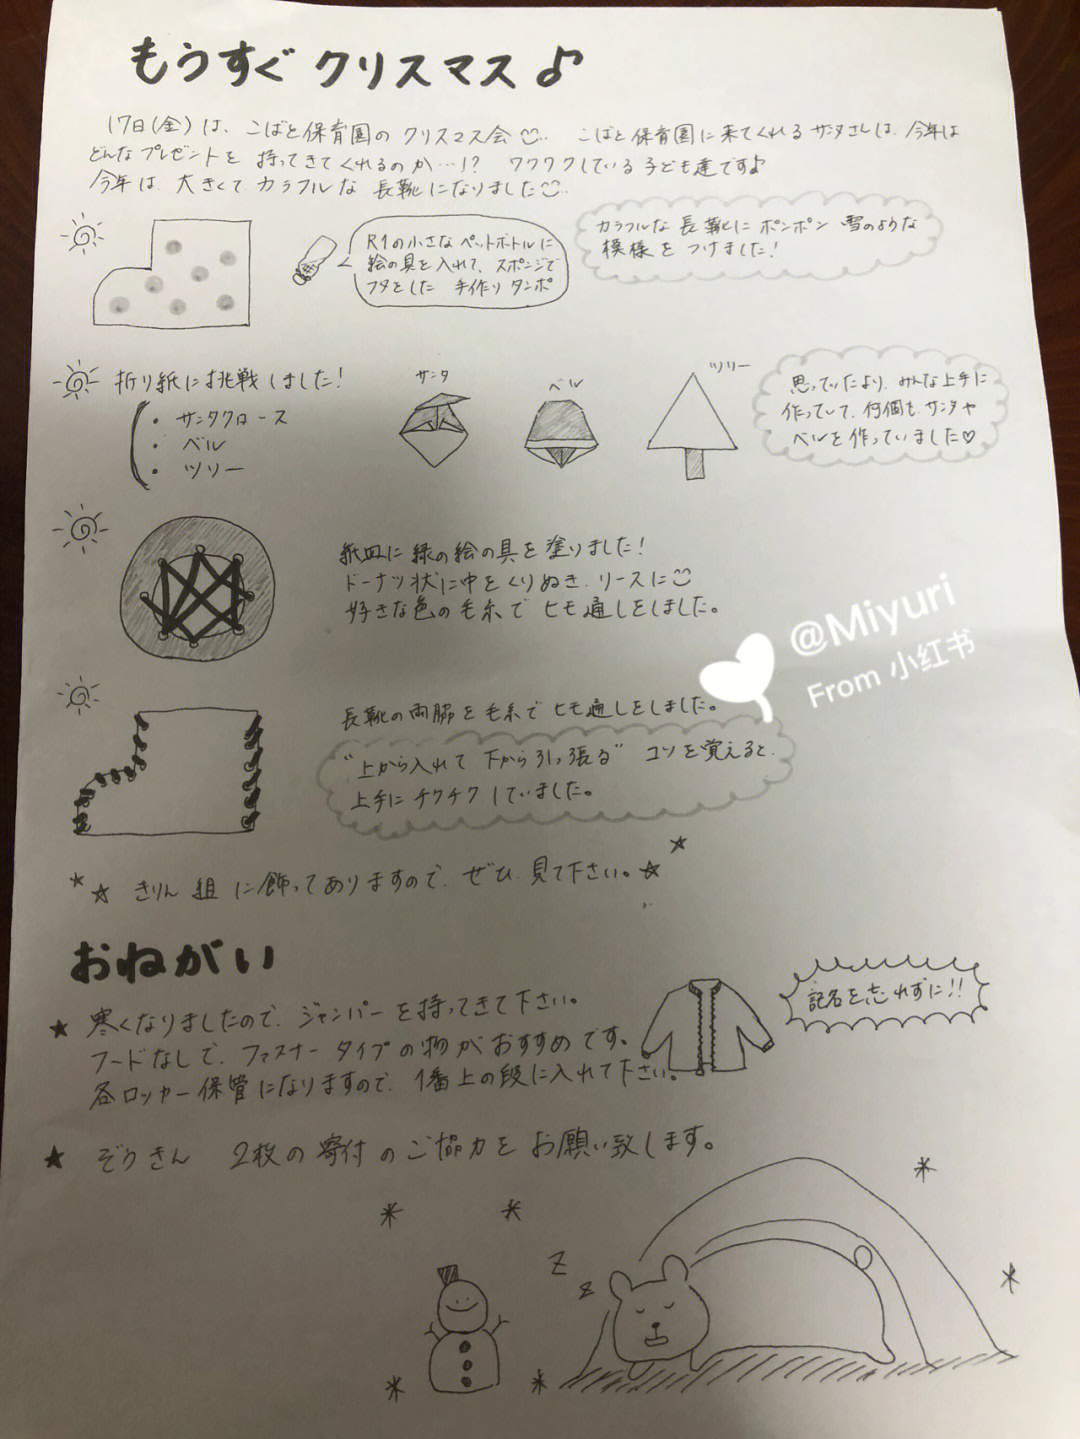 もうすぐクリスマス♪
17日(金)は、こばと保育園のクリスマス会 こばと保育園に来てくれるサンタさんは、今年は
どんなプレゼントを持ってきてくれるのか…!? ワクワクしている子ども達です♪
今年は、大きくてカラフルな長靴になりました
R1の小さなペットボトルに
絵の具を入れて、スポンジで
フタをした 手作りタンポ
カラフルな長靴にポンポン 雪のような
模様をつけました!
折り紙に挑戦しました!
・サンタクロース
・ベル
・ツリー
サンタ
ベル
ツリー
思っていたより、みんな上手に
作っていて、何個もサンタや
ベルを作っていました♡
紙皿に緑の絵の具を塗りました!
ドーナツ状に中をくりぬき、リースに
好きな色の毛糸でヒモ通しをしました。
長靴の両脇を毛糸でヒモ通しをしました。
"上から入れて 下から引っ張る" コツを覚えると、
上手にチクチクしていました。
@Miyuri
From 小红书
きりん組に飾ってありますので、ぜひ見て下さい。☆
おねがい
★ 寒くなりましたので、ジャンパーを持ってきて下さい。
フードなしで、ファスナータイプの物がおすすめです。
各ロッカー保管になりますので、1番上の段に入れて下さい。
記名を忘れずに!!
★ ぞうきん 2枚の寄付のご協力をお願い致します。
z
z